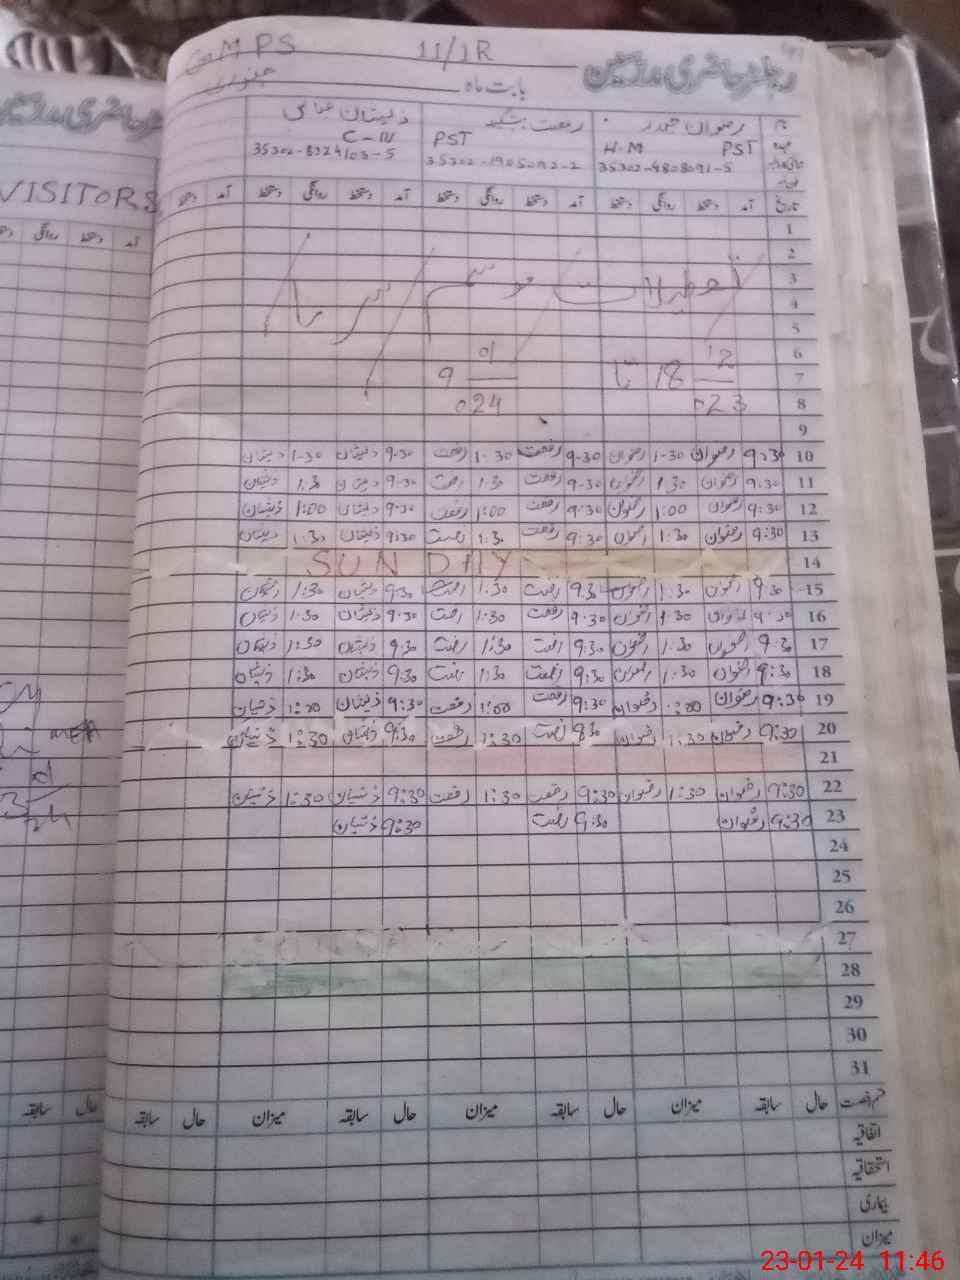 GMPS 11/1R رجسٹر حاضری مدرسین
بابت ماہ جنوری
نام رضوان حیدر رفعت ذیشان
عہدہ PST H.M PST C-IV
35302-4808091-5 35302-1905092-2
تاریخ آمد دستخط روانگی دستخط آمد دستخط روانگی دستخط آمد دستخط روانگی دستخط آمد دستخط
1
2
3 تعطیلات موسم سرما
4
5
6
7 18 12/023 تا 9 01/024
8
9
10 9:30 رضوان 1-30 رضوان 9-30 رفعت 1:30 رفعت 9-30 ذیشان 1-30 ذیشان
11 9:30 رضوان 1:30 رضوان 9-30 رفعت 1:30 رفعت 9-30 ذیشان 1:30 ذیشان
12 9:30 رضوان 1:00 رضوان 9:30 رفعت 1:00 رفعت 9-30 ذیشان 1:00 ذیشان
13 9:30 رضوان 1:30 رضوان 9:30 رفعت 1:30 رفعت 9:30 ذیشان 1:30 ذیشان
14 SUNDAY
15 9:30 رضوان 1:30 رضوان 9:30 رفعت 1:30 رفعت 9:30 ذیشان 1:30 ذیشان
16 9:30 رضوان 1:30 رضوان 9:30 رفعت 1:30 رفعت 9:30 ذیشان 1:30 ذیشان
17 9:30 رضوان 1:30 رضوان 9:30 رفعت 1:30 رفعت 9:30 ذیشان 1:30 ذیشان
18 9:30 رضوان 1:30 رضوان 9:30 رفعت 1:30 رفعت 9:30 ذیشان 1:30 ذیشان
19 9:30 رضوان 1:00 رضوان 9:30 رفعت 1:00 رفعت 9:30 ذیشان 1:00 ذیشان
20 9:30 رضوان 1:30 رضوان 9:30 رفعت 1:30 رفعت 9:30 ذیشان 1:30 ذیشان
21
22 9:30 رضوان 1:30 رضوان 9:30 رفعت 1:30 رفعت 9:30 ذیشان 1:30 ذیشان
23 9:30 رضوان 9:30 رفعت 9:30 ذیشان
24
25
26
27
28
29
30
31
قسم رخصت حال سابقہ میزان حال سابقہ میزان حال سابقہ میزان حال سابقہ
اتفاقیہ
استحقاقیہ
بیماری
میزان
VISITORS
آمد دستخط روانگی
حال سابقہ
23-01-24 11:46